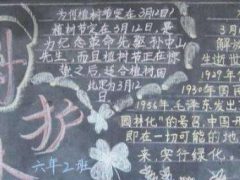 为何植树节定在3月12日?
植树节定在3月12日,是
为纪念革命先驱孙中山
先生,而且植树节正在惊
蛰之后,适合植树因
此定为3月12
日
六年2班
3月
解放
生逝世
1929年
1930年国
1956年,毛泽东发出
园林化"的号召,中国开
即在一切可能的地
来,实行绿化。